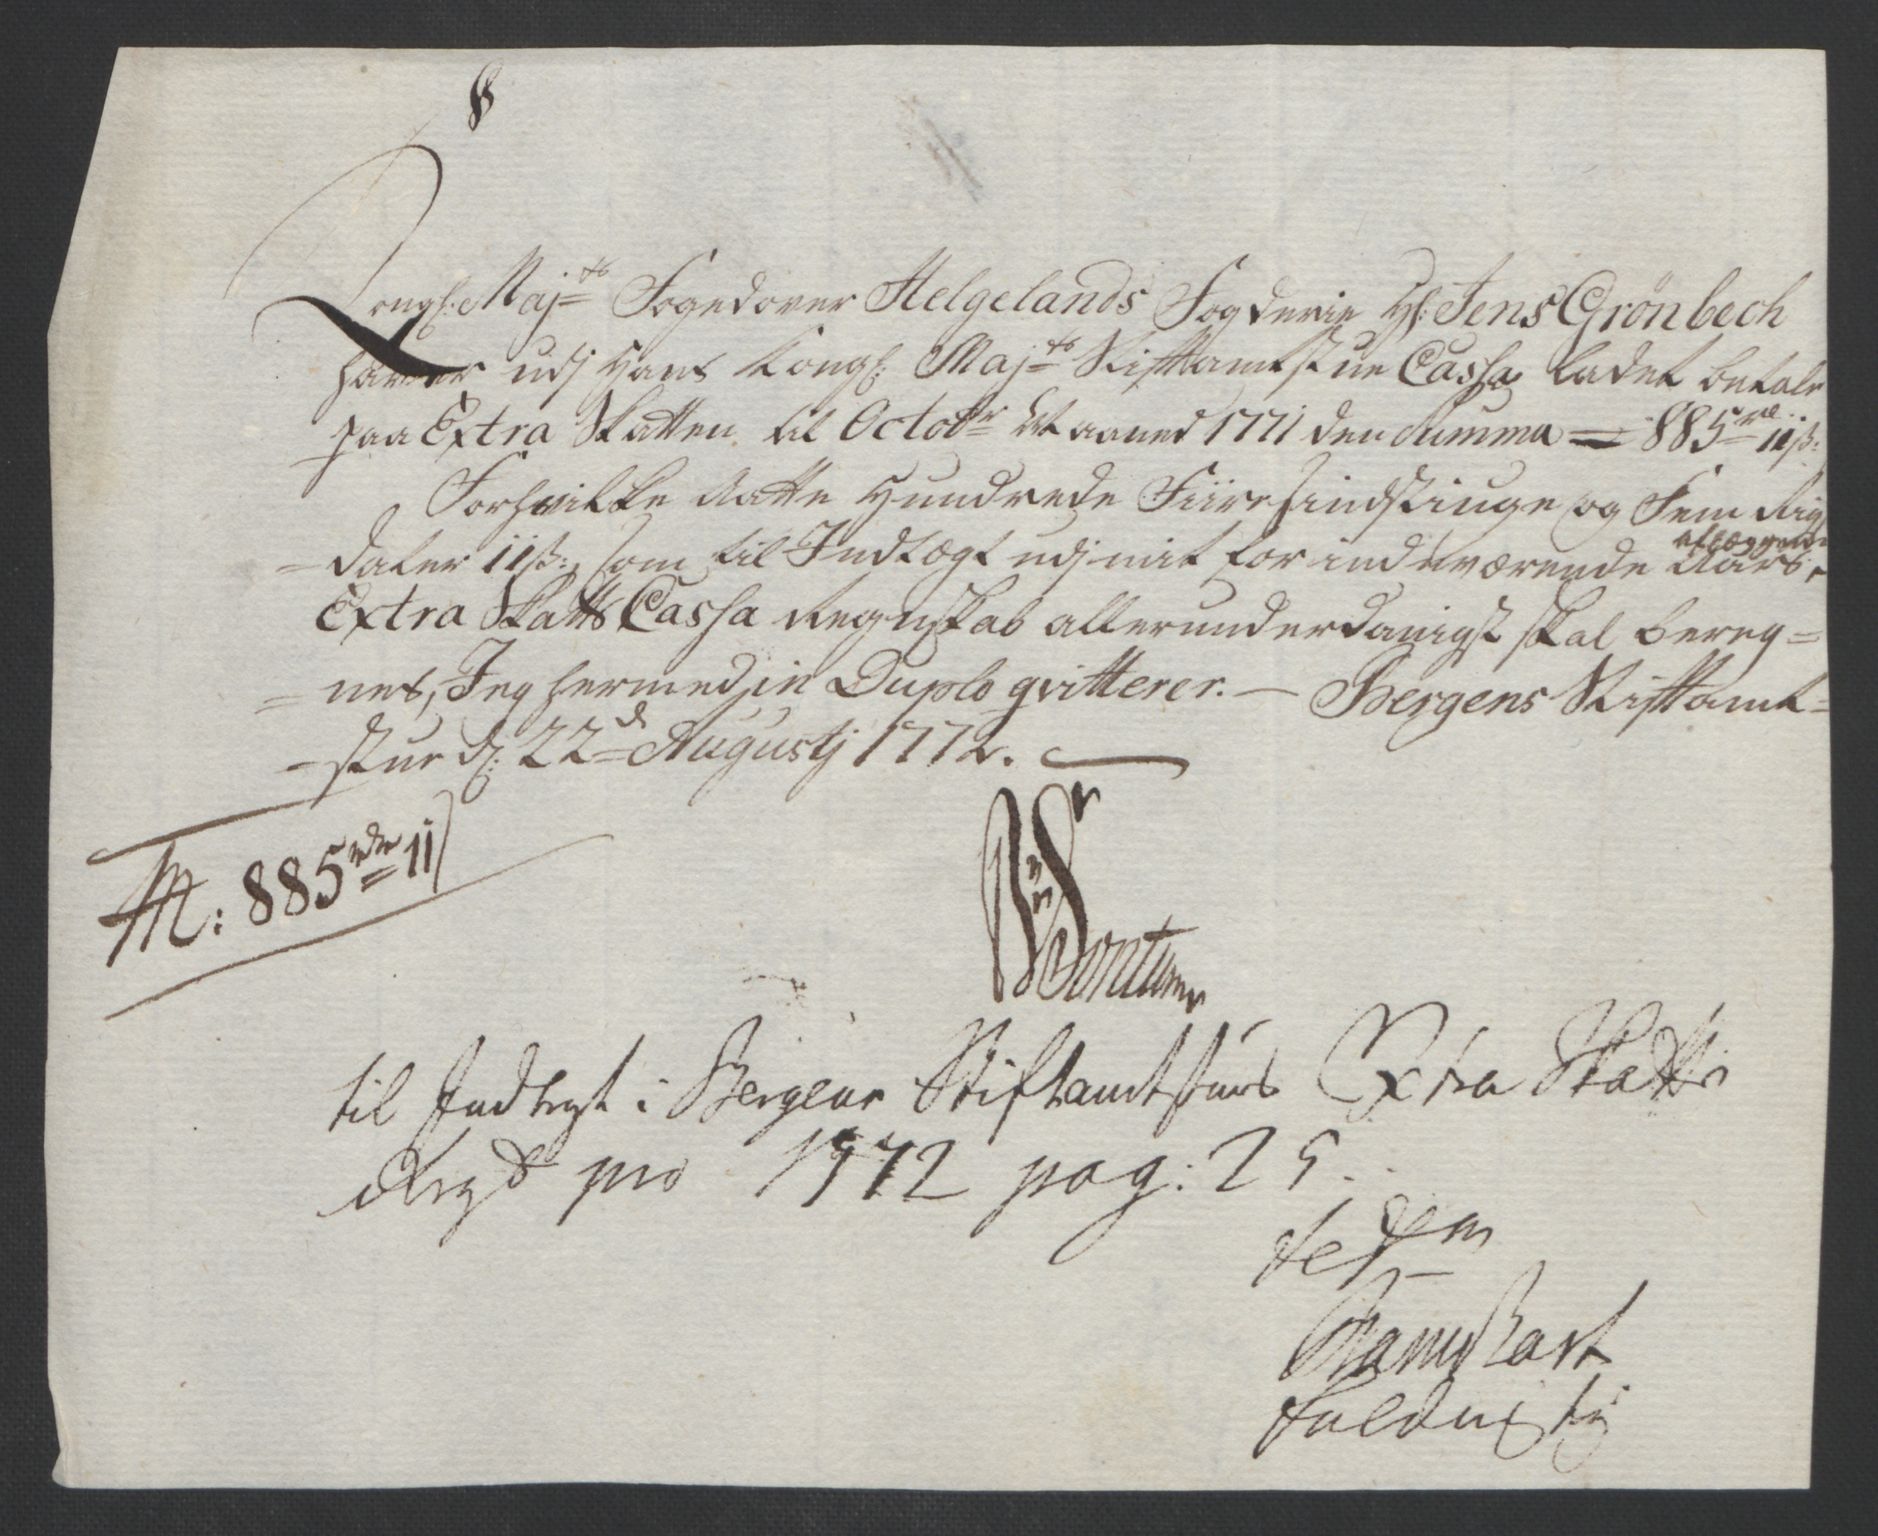 8
Kongl: Maj:ts Foged over Helgelands Fogderie Hr: Jens Grönbech
haver udj Hans Kongl: Maj:ts Stiftamtstue Cassa ladet betale
paa Extra Skatten til Octobr Maaned 1771 den Summa = 885 rd 11 ß:
Forhvilke Aatte Hundrede Fiiresindstiuge og Fem Rigs
daler 11 ß:, som til Indtægt udj mit for indeværende Aars
aflæggende
Extra Skatts Cassa Regnskab allerunderdanigst skal bereg=
=nes, Jeg hermed in Duplo qvitterer. — Bergens Stiftamt=
-stue d: 22d Augustj 1772.
885 rdr 11
til Indtegt i Bergens Stiftamtstues Extra Skatte
Regsk pro 1772 pag: 25.